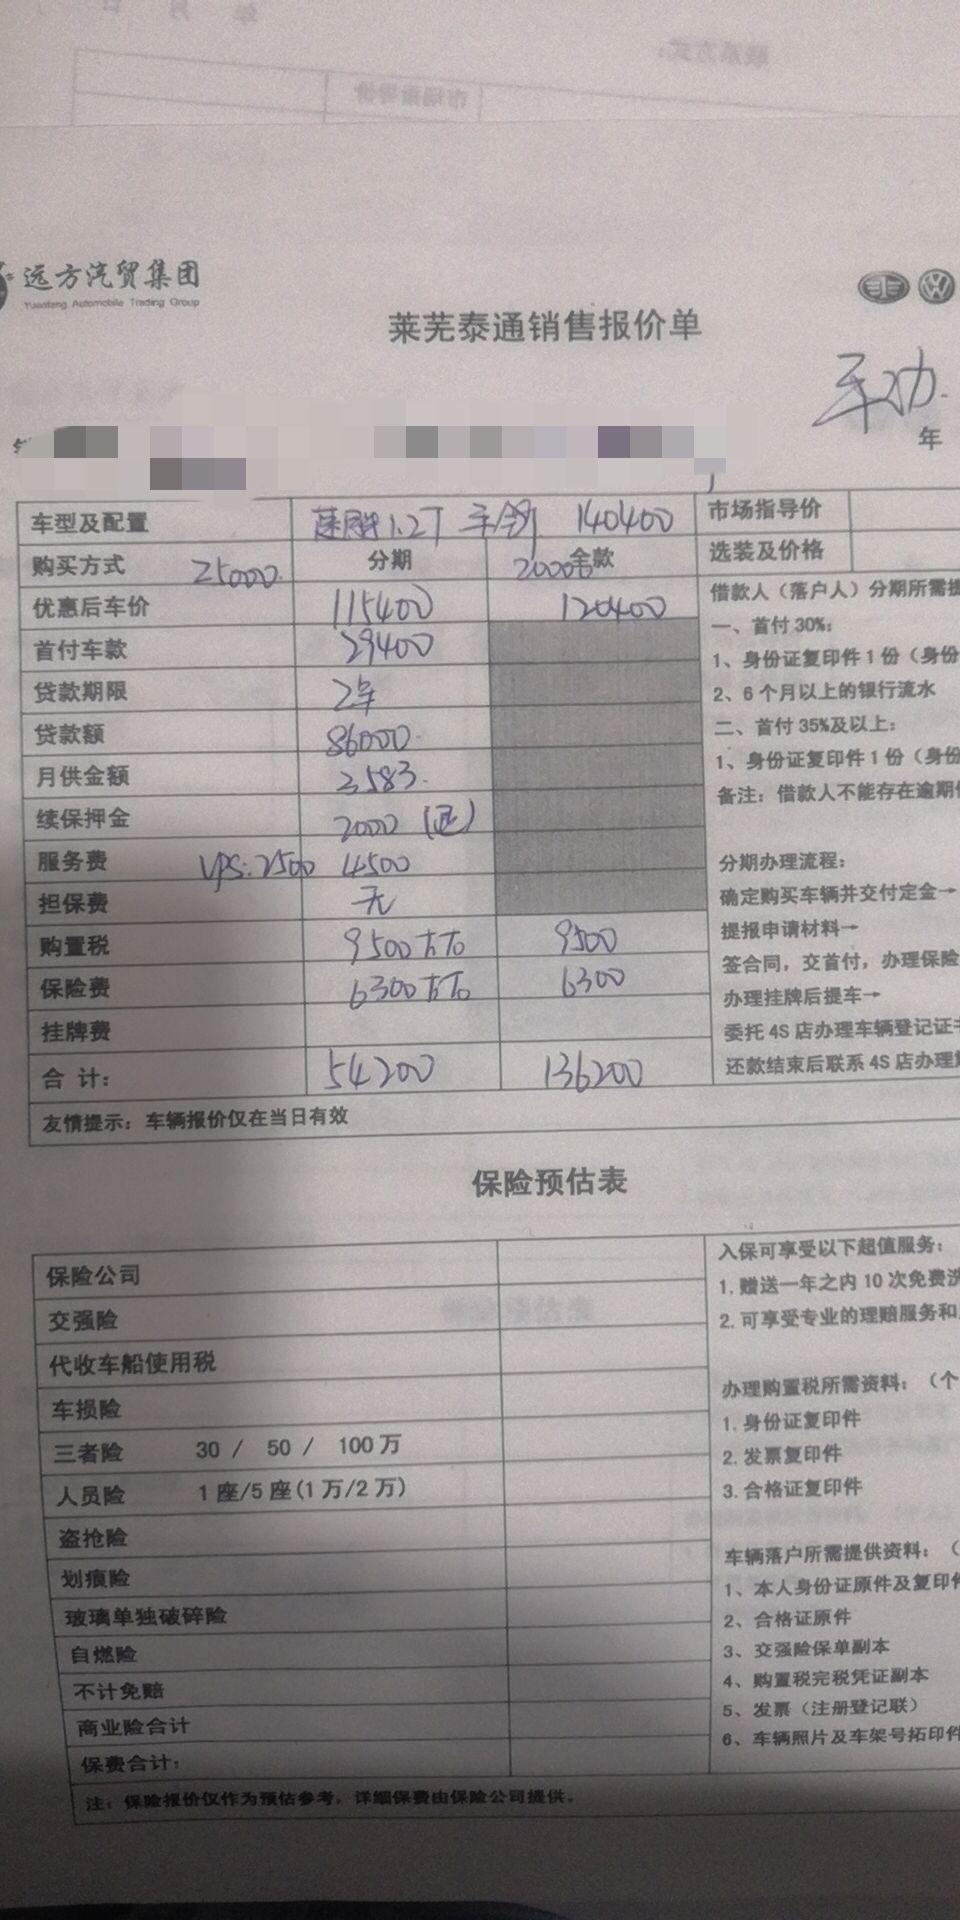 远方汽贸集团
Yuanfang Automobile Trading Group
莱芜泰通销售报价单
年
车型及配置 速腾1.2T 140400 市场指导价
购买方式 25000. 分期 20000 全款 选装及价格
优惠后车价 115400 120400
借款人（落户人）分期所需提
首付车款 29400
一、首付 30%：
1、身份证复印件 1 份（身份
贷款期限 2年
2、6 个月以上的银行流水
贷款额 86000.
二、首付 35%及以上：
月供金额 3583.
1、身份证复印件 1 份（身份
备注：借款人不能存在逾期
续保押金 2000 (退)
服务费 VPS:2500 4500
分期办理流程：
担保费 无
确定购买车辆并交付定金→
购置税 9500左右 9500
提报申请材料→
保险费 6300左右 6300
签合同，交首付，办理保险
办理挂牌后提车→
挂牌费
委托 4S 店办理车辆登记证
合 计： 54200 136200
还款结束后联系 4S 店办理
友情提示：车辆报价仅在当日有效
保险预估表
保险公司
入保可享受以下超值服务：
1.赠送一年之内 10 次免费洗
交强险
2.可享受专业的理赔服务和
代收车船使用税
车损险
办理购置税所需资料：（个
1.身份证复印件
三者险 30 / 50 / 100 万
2.发票复印件
人员险 1 座/5 座(1 万/2 万)
3.合格证复印件
盗抢险
车辆落户所需提供资料：（
划痕险
1、本人身份证原件及复印件
玻璃单独破碎险
2、合格证原件
自燃险
3、交强险保单副本
不计免赔
4、购置税完税凭证副本
商业险合计
5、发票（注册登记联）
保费合计：
6、车辆照片及车架号拓印件
注：保险报价仅作为预估参考，详细保费由保险公司提供。